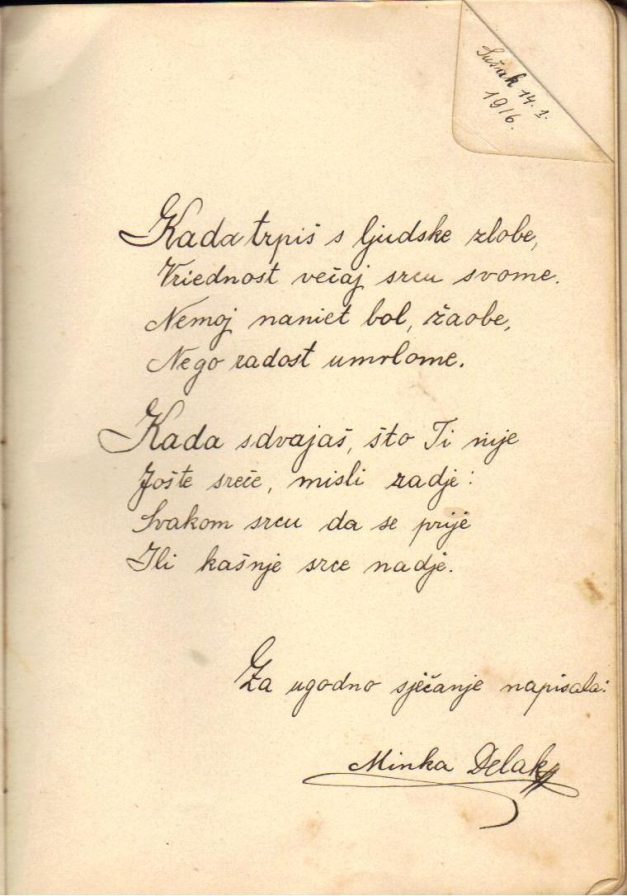 Sušak 14. 1.
1916.
Kada trpiš s ljudske zlobe,
Vriednost većaj srcu svome.
Nemoj naniet bol, žaobe,
Nego radost umrlome.
Kada sdvajaš, što Ti nije
Jošte sreće, misli radje:
Svakom srcu da se prije
Ili kašnje srce nadje.
Za ugodno sjećanje napisala:
Minka Delak